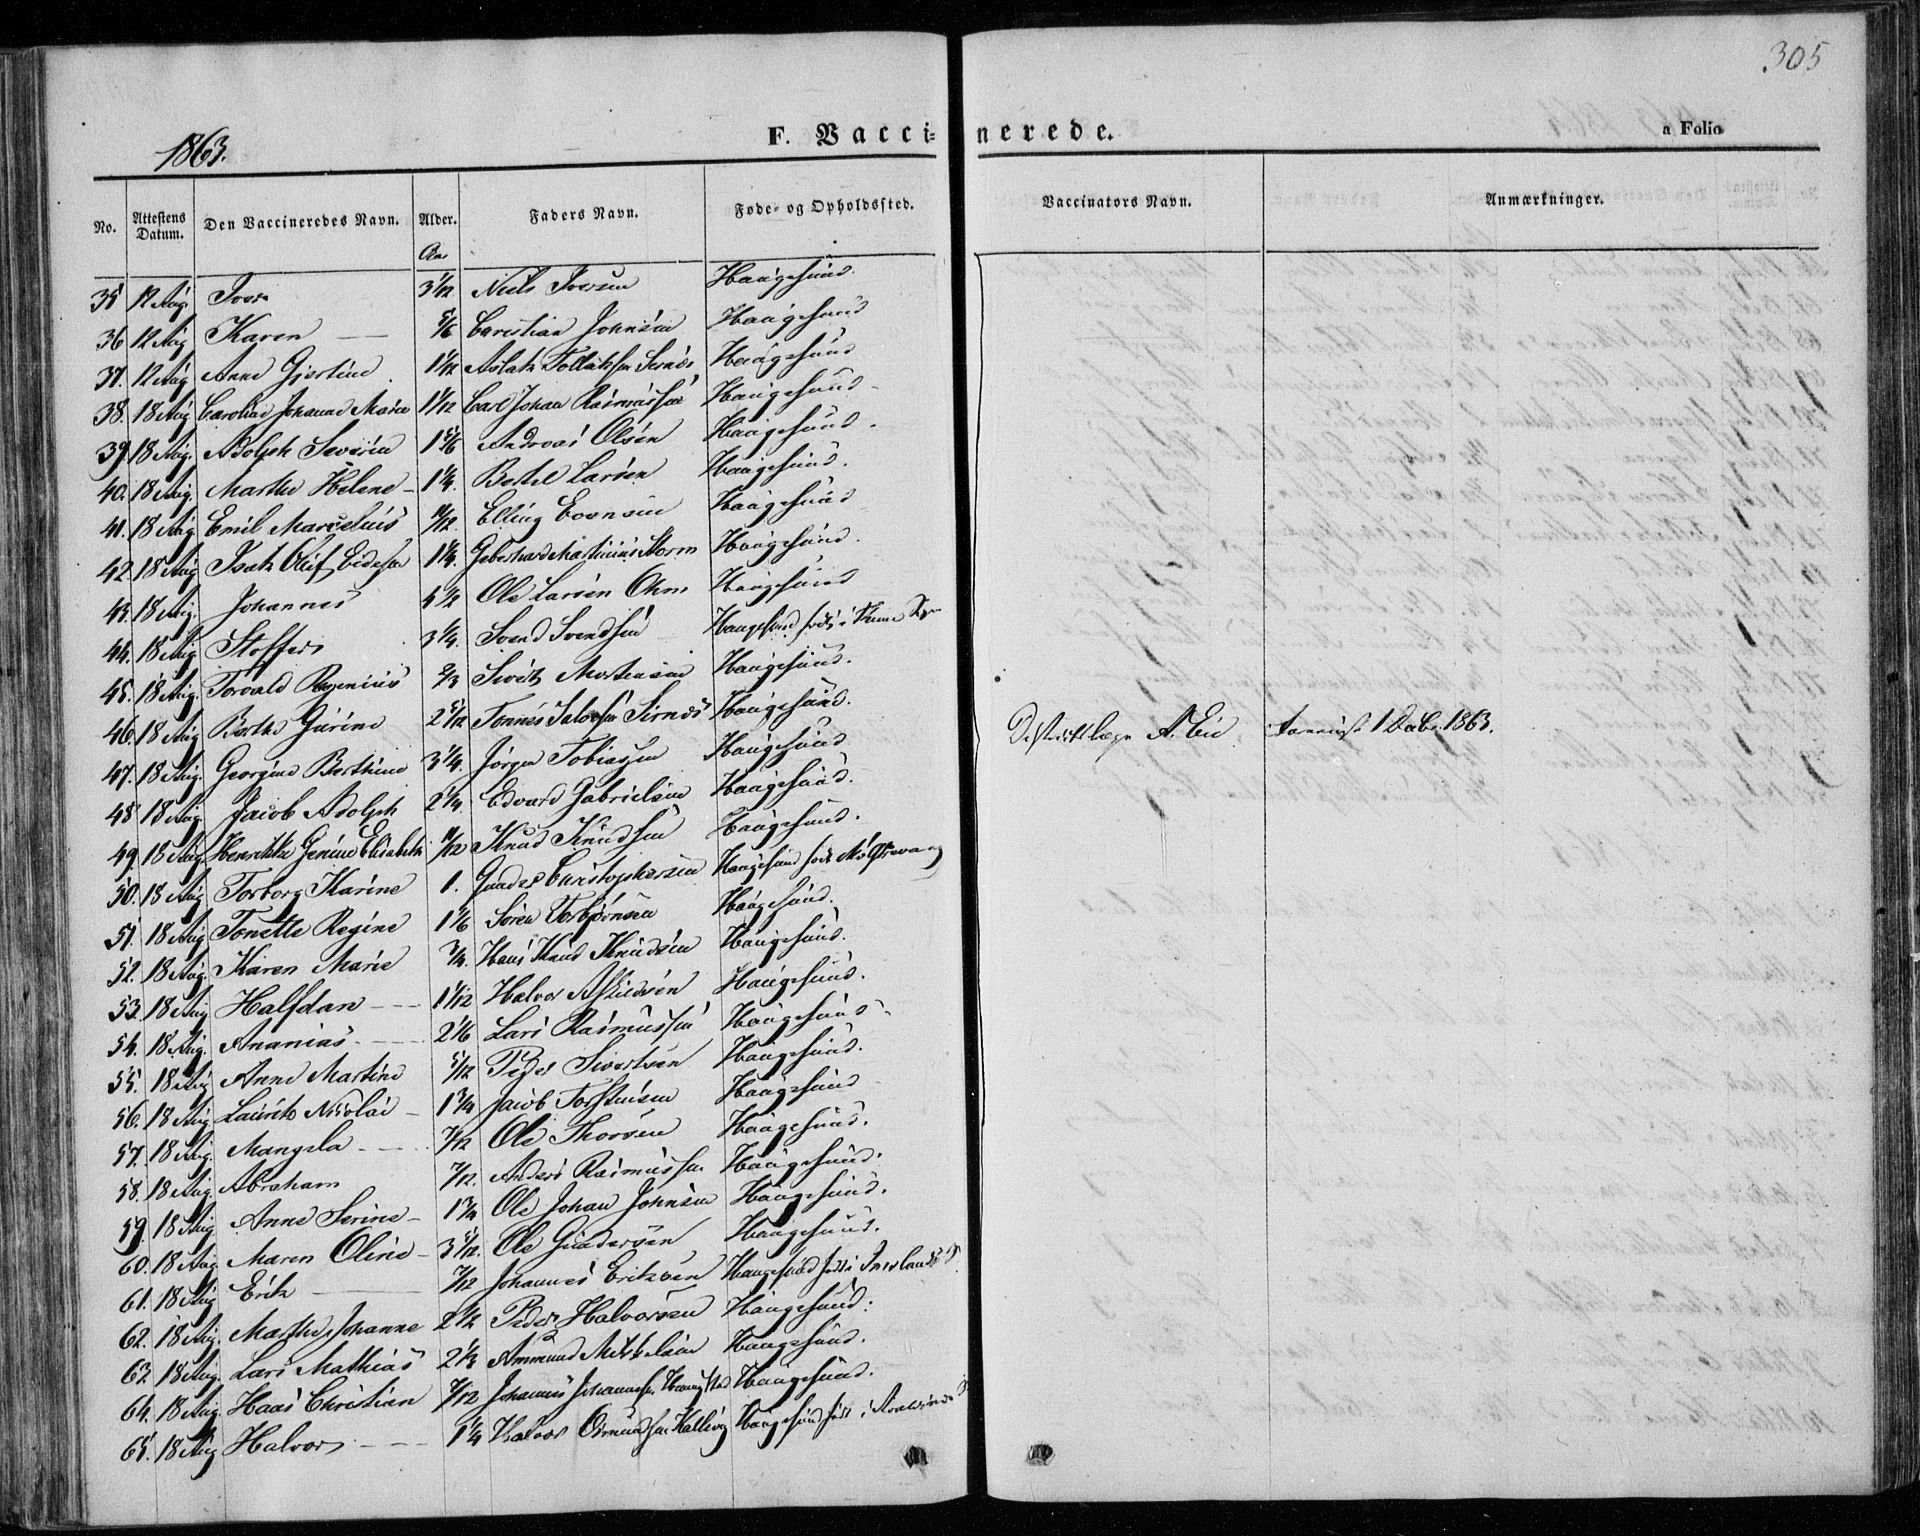 305
1863.
F. Vaccinerede.
a Folio
No. Attestens Datum. Den Vaccineredes Navn. Alder. Faders Navn. Føde- og Opholdssted. Vaccinators Navn. Anmærkninger.
Aar
35 12 Aug Iver 3 1/12 Niels Iversen Haugesund.
36 12 Aug Karen 5/6 Christian Johnsen Haugesund
37. 12 Aug Anne Gjertine 1 1/12 Aslak Tollaksen Haugesund
38. 18 Aug Caroline Johanne Marie 1 1/12 Carl Johan Rasmussen Haugesund
39 18 Aug. Adolph Severin 1 5/6 Andreas Olsen Haugesund.
40. 18 Aug. Marthe Helene 1 1/4. Bertel Larsen Haugesund.
41. 18 Aug Emil Marselius 11/12. Elling Evensen Haugesund
42. 18 Aug Isak Oluf Eidesen 1 1/4. Geberhard Martinius Storm Haugesund.
43. 18 Aug. Johannes 4 1/2 Ole Larsen Ohm Haugesund
44. 18 Aug Stoffer 3 1/4. Svend Svendsen Haugesund født i
45. 18 Aug. Torvald Regenius 2/3 Sivert Mortensen Haugesund.
46. 18 Aug Berthe Gurine 2 5/12 Tønnes Salvesen Sirnes Haugesund.
47. 18 Aug. Georgine Berthine 3 1/4. Jørgen Tobiassen Haugesund
48 18 Aug Jacob Adolph 2 1/4 Edvard Gabrielsen Haugesund.
49 18 Aug Henrikke Genine Elisabeth 11/12 Knud Knudsen Haugesund.
50. 18 Aug Torborg Karine 1. Gunder Christophersen Haugesund født
51. 18 Aug Tonette Regine 1 1/6 Søren Torbjørnsen Haugesund.
52. 18 Aug. Karen Marie 3/4. Hans Knud Knudsen Haugesund.
53. 18 Aug Halfdan 1 1/12 Halvor Haugesund.
54. 18 Aug. Ananias 2 1/6 Lars Rasmussen Haugesund
55. 18 Aug Anne Martine 5/12 Peder Sivertsen Haugesund.
56. 18 Aug Lauritz Nicolai 1 3/4 Jacob Torstensen Haugesund
57. 18 Aug. Mangela 7/12 Ole Thorsen Haugesund.
58. 18 Aug. Abraham 7/12. Anders Rasmussen Haugesund.
59 18 Aug Anne Serine 1 3/4 Ole Johan Johnsen Haugesund.
60. 18 Aug Maren Oline 3 5/12. Ole Gundersen Haugesund.
61. 18 Aug Erik 7/12 Johannes Eriksen Haugesund født i
62. 18 Aug. Marthe Johanne 2 1/2 Peder Halvorsen Haugesund.
63 18 Aug. Lars Mathias 2 1/3 Ammund Mikkelsen Haugesund.
64. 18 Aug. Haas Christian 7/12 Johannes Johannesen Haugesund.
65. 18 Aug Halvor 1 1/4 Halvor Osmundsen Haugesund født i
Districtslæge A. Eie 1863.